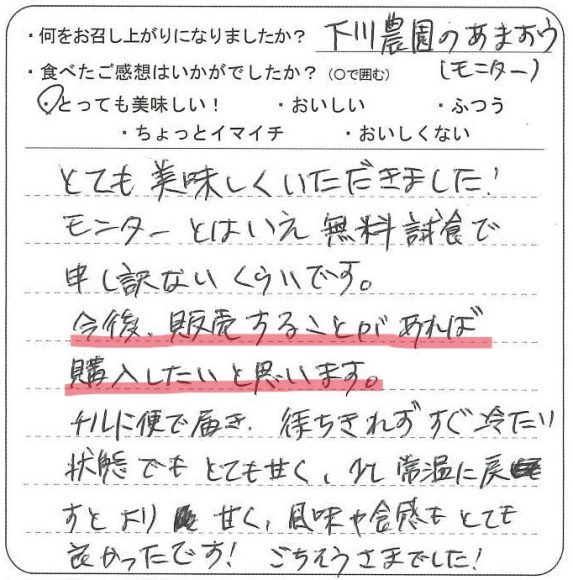 ・何をお召し上がりになりましたか？ 下川農園のあまおう
・食べたご感想はいかがでしたか？（○で囲む） （モニター）
・とっても美味しい！ ・おいしい ・ふつう
・ちょっとイマイチ ・おいしくない
とても美味しくいただきました！
モニターとはいえ無料試食で
申し訳ないくらいです。
今後、販売することがあれば
購入したいと思います。
チルド便で届き、待ちきれずすぐ冷たい
状態でもとても甘く、少し常温に戻
すとより甘く、風味や食感もとても
良かったです！ ごちそうさまでした！